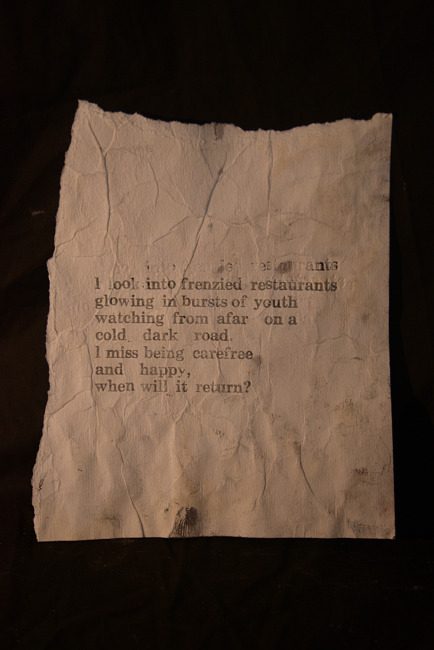 restaurants
I look into frenzied restaurants
glowing in bursts of youth
watching from afar on a
cold dark road.
I miss being carefree
and happy,
when will it return?